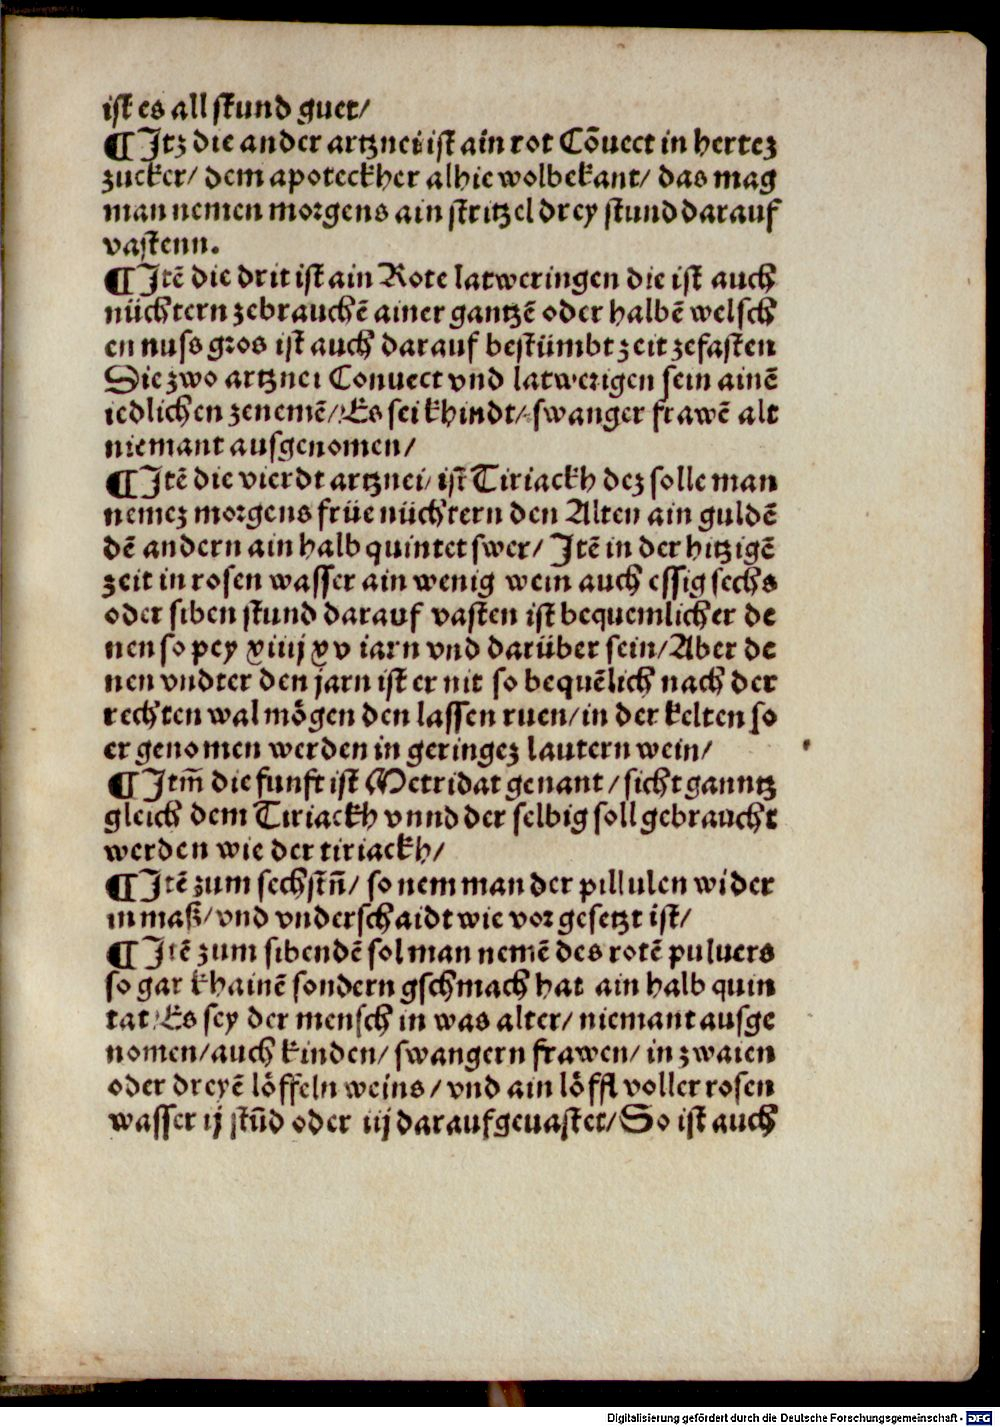 ist es all stund guet/
¶ Itz die ander artznei ist ain rot Cōuect in hertez
zucker/ dem apoteckher alhie wolbekant/ das mag
man nemen morgens ain stritzel drey stund darauf
vastenn.
¶ Itē die drit ist ain Rote latweringen die ist auch
nüchtern zebrauchē ainer gantzē oder halbē welsch
en nuss gros ist auch darauf bestümbt zeit zefasten
Die zwo artznei Conuect vnd latwerigen sein ainē
iedlichen zenemē/ Es sei khindt/ swanger frawē alt
niemant ausgenomen/
¶ Itē die vierdt artznei/ ist Tiriackh dez solle man
nemez morgens früe nüchtern den Alten ain guldē
dē andern ain halb quintet swer/ Itē in der hitzigē
zeit in rosen wasser ain wenig wein auch essig sechs
oder siben stund darauf vasten ist bequemlicher de
nen so pey xiiij xv iarn vnd darüber sein/ Aber de
nen vndter den jarn ist er nit so bequēlich nach der
rechten wal mögen den lassen ruen/ in der kelten so
er genomen werden in geringez lautern wein/
¶ Itm̄ die funft ist Metridat genant/ sicht ganntz
gleich dem Tiriackh vnnd der selbig soll gebraucht
werden wie der tiriackh/
¶ Itē zum sechstn̄/ so nem man der pillulen wider
in maß/ vnd vnderschaidt wie vor gesetzt ist/
¶ Itē zum sibendē sol man nemē des rotē puluers
so gar khainē sondern gschmach hat ain halb quin
tat/ Es sey der mensch in was alter/ niemant ausge
nomen/ auch kinden/ swangern frawen/ in zwaien
oder dreyē löffeln weins/ vnd ain löffl voller rosen
wasser ij stūd oder iij darauf geuastet/ So ist auch
Digitalisierung gefördert durch die Deutsche Forschungsgemeinschaft - DFG